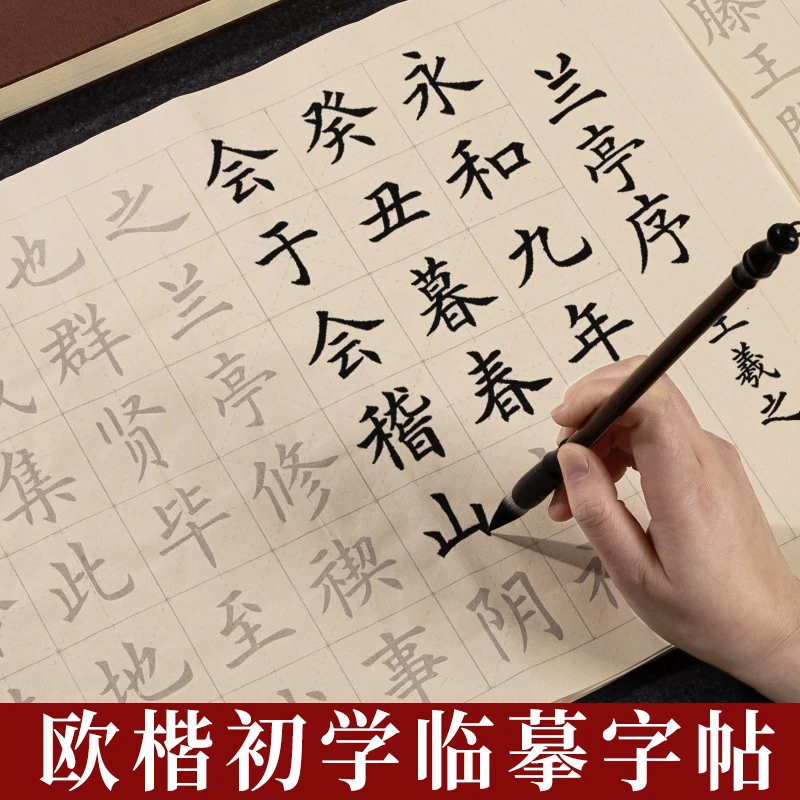 滕王
兰亭序
王羲之
永和九年
癸丑暮春
会于会稽山阴
之兰亭修禊事
也群贤毕至
集此地
欧楷初学临摹字帖